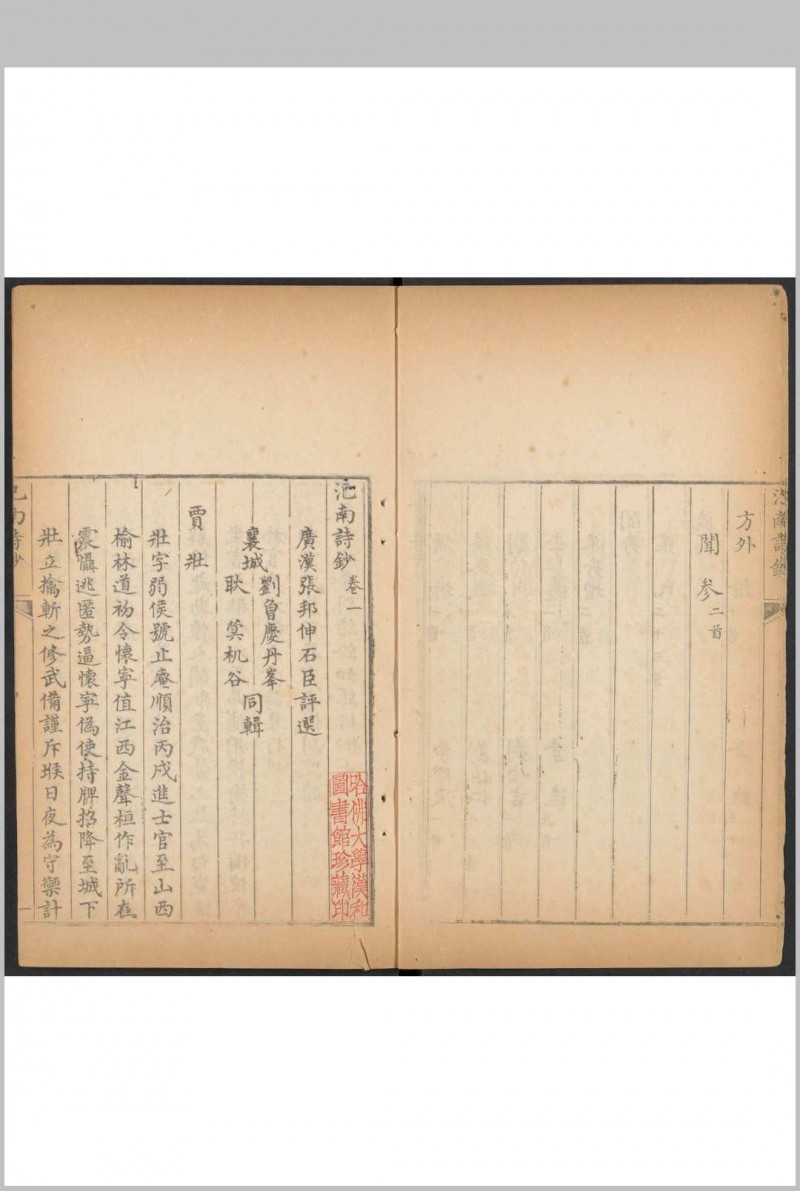 方外
聞參二首
氾南詩鈔卷一
廣漢張邦伸石臣評選
襄城
劉曾慶丹峯
耿蓂机谷
同輯
賈壯
壯字弱侯號止庵順治丙戌進士官至山西
榆林道初令懷寧值江西金聲桓作亂所在
震懾逃匿勢逼懷寧偽使持牌招降至城下
壯立擒斬之修武備謹斥堠日夜為守禦計
哈佛大學漢和
圖書館珍藏印
一